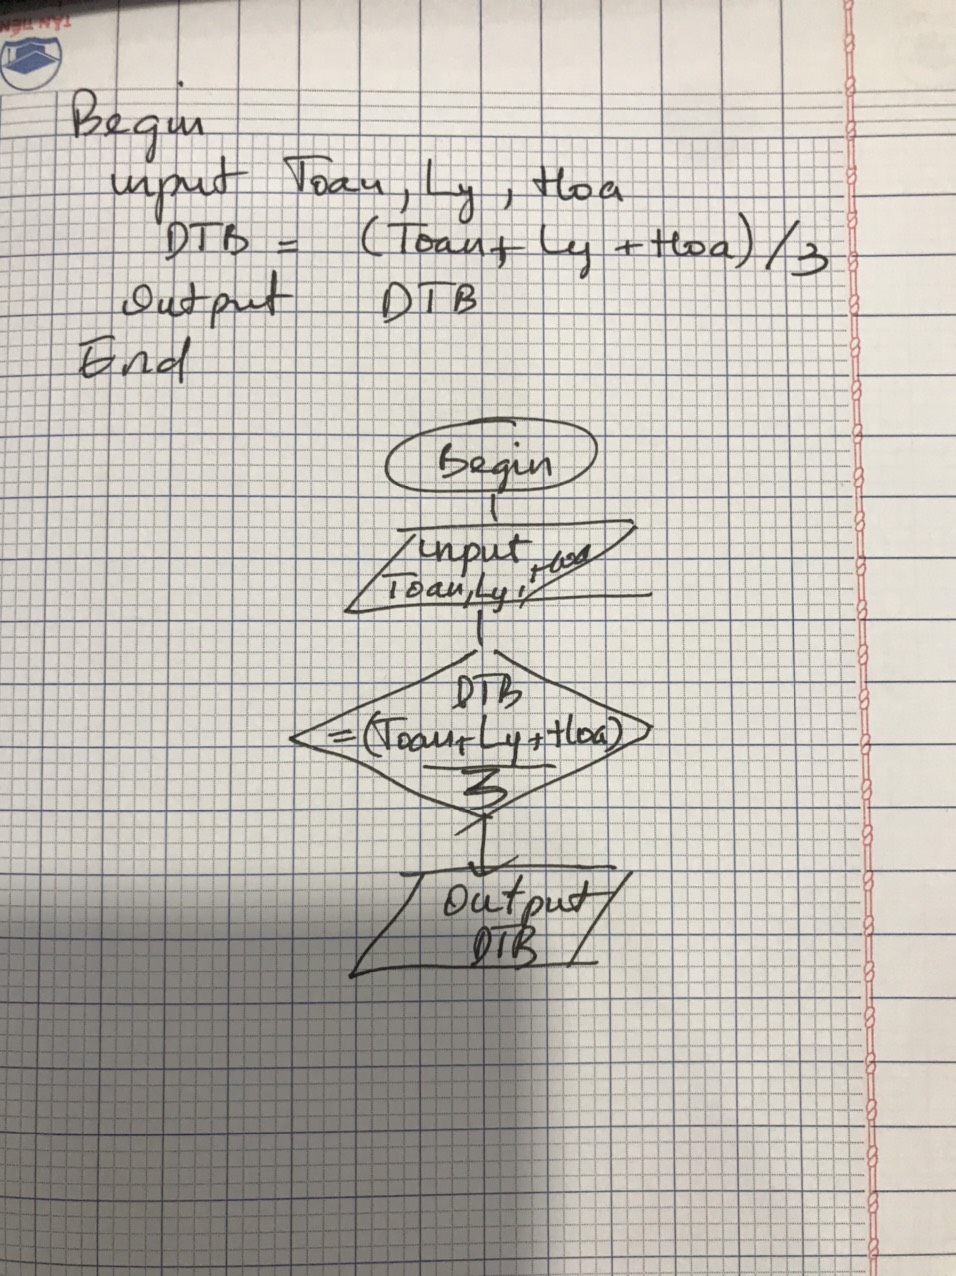 TÂN TIẾN
Begin
input Toan, Ly, Hoa
DTB = (Toan + Ly + Hoa) / 3
Output DTB
End
Begin
input
Toan, Ly, Hoa
DTB
= (Toan + Ly + Hoa)
3
Output
DTB